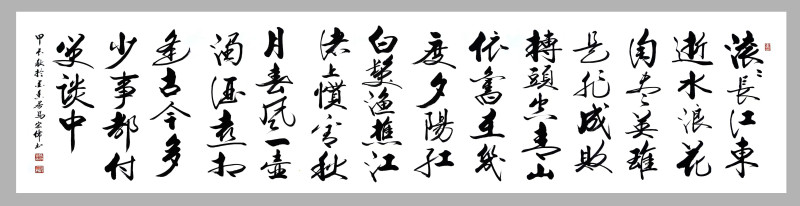 滚々長江東
逝水浪花
淘盡英雄
是非成敗
轉頭空青山
依舊在幾
度夕陽紅
白髮漁樵江
渚上慣看秋
月春風一壺
濁酒喜相
逢古今多
少事都付
笑談中
甲午秋於